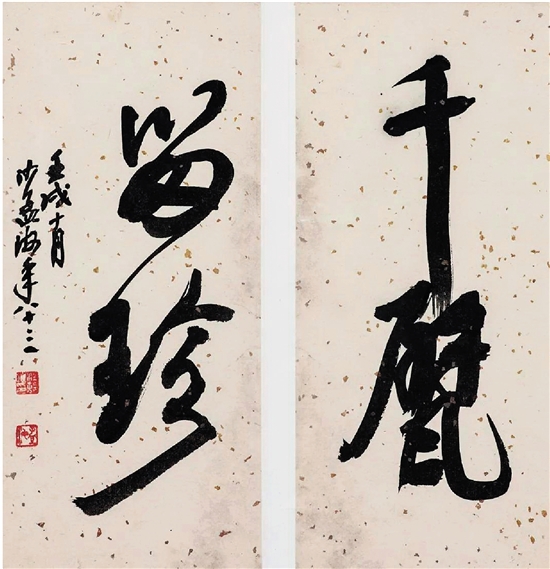 千甓
留珍
壬戌十月
沙孟海年八十三